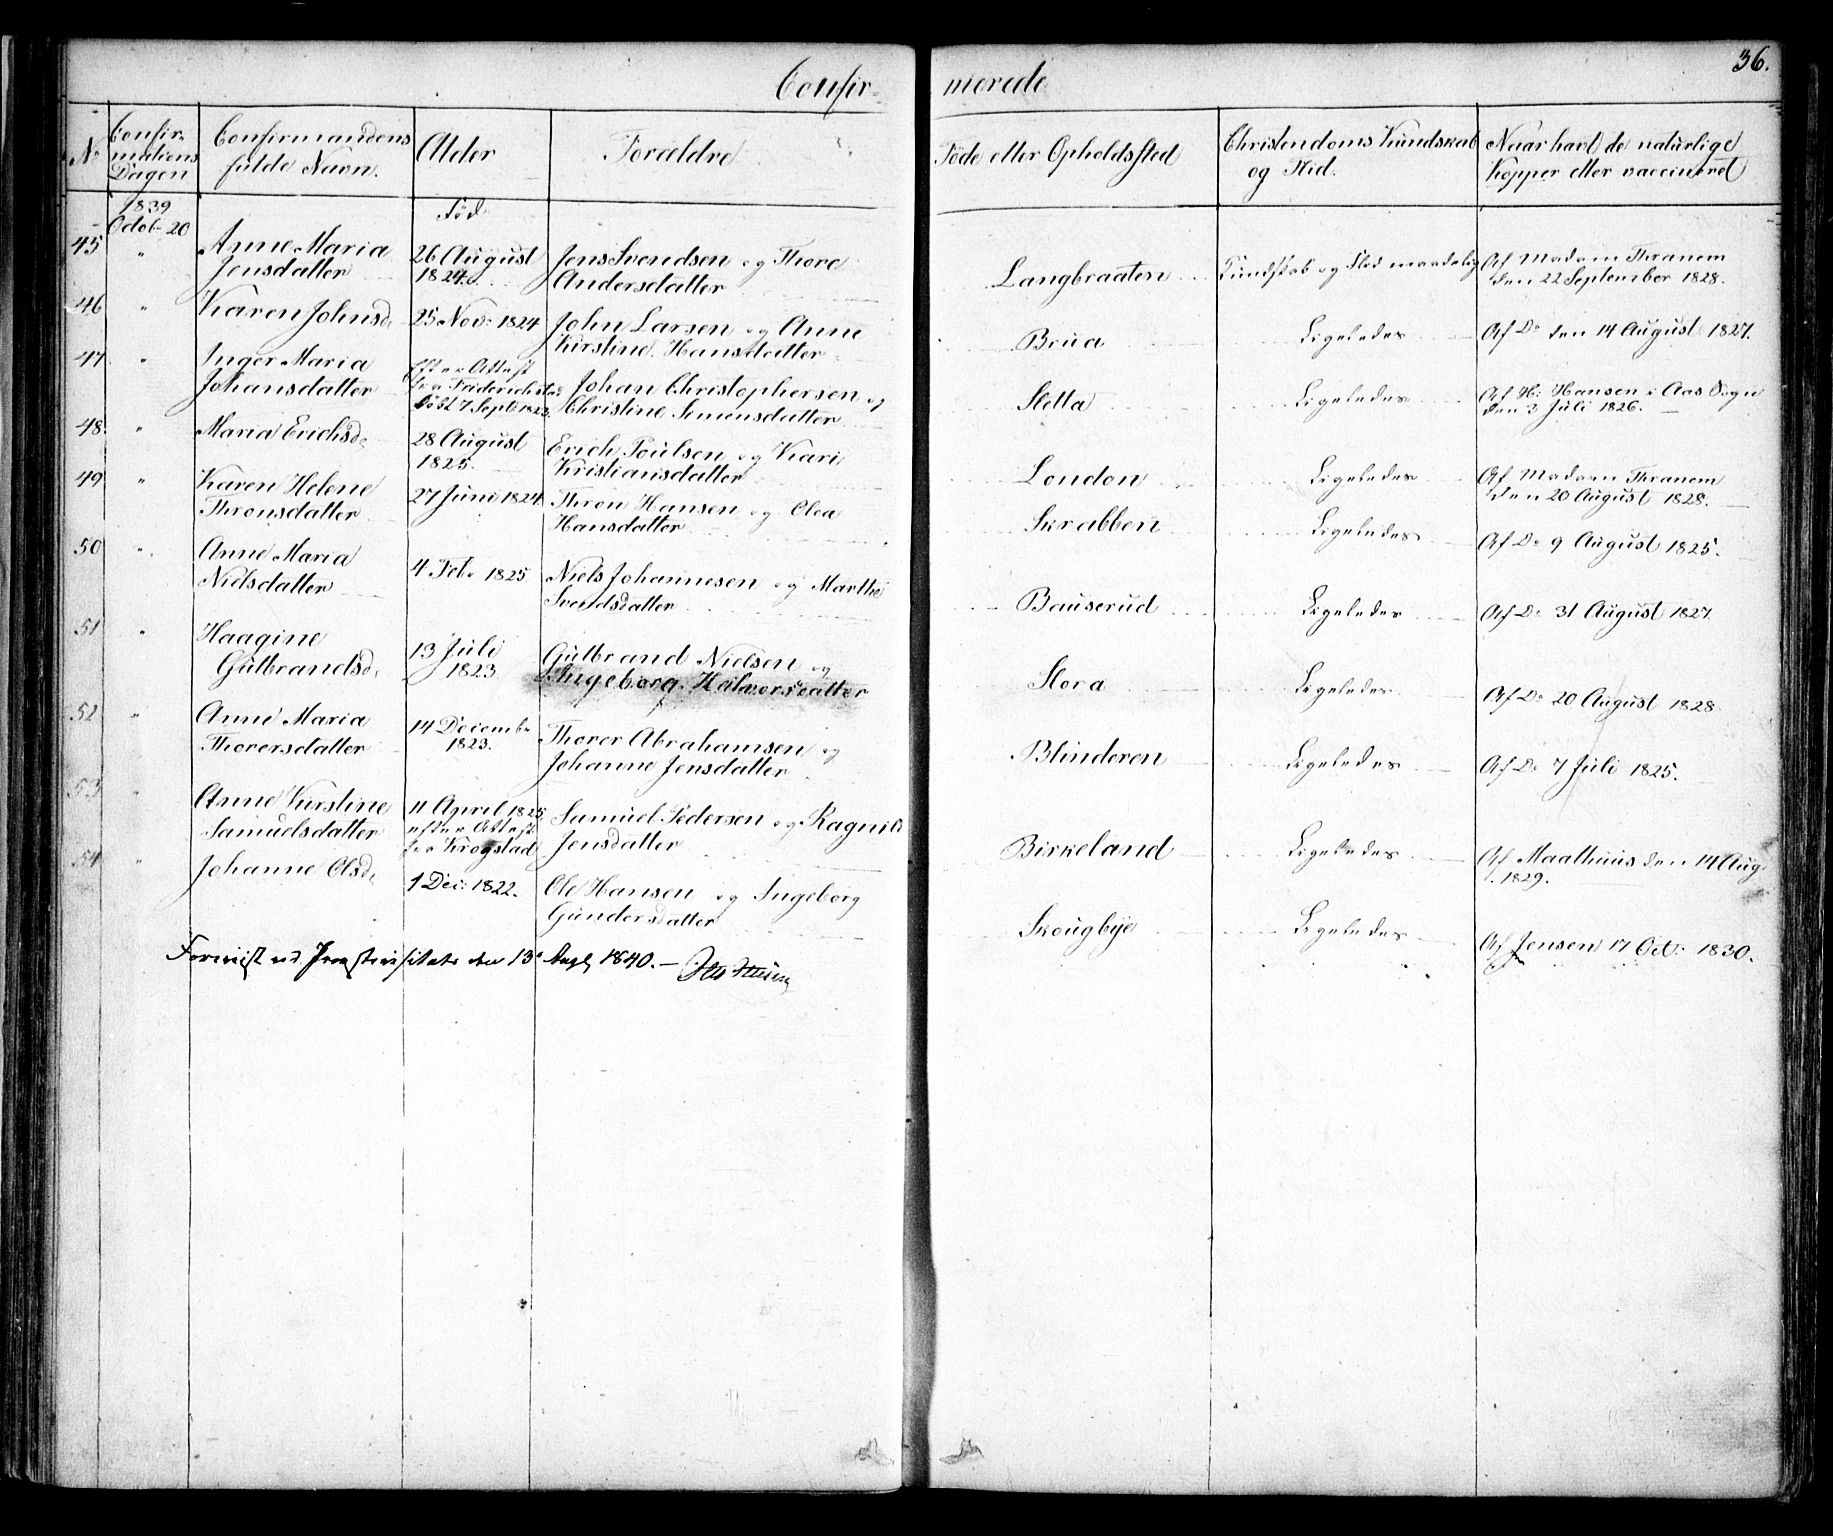 36.
Confir- merede
No
Confir-
mations
Dagen
Confirmandens
fulde Navn.
Alder
Forældre
Föde eller Opholdssted
Christendoms Kundskab
og Flid.
Naar havt de naturlige
Kopper eller vaccineret
1839
Octob. 20
Född
45 " Anne Maria
Jensdatter
26 August
1824.
Jens Svendsen og Thore
Andersdatter
Langbraaten
Kundskab og Flid maadelig
Af Madam Thranem
den 22 September 1828.
46 " Karen Johnsd.
25 Nov. 1824
John Larsen og Anne
Kirstine Hansdatter
Brua
Ligeledes
Af Do den 14 August 1827.
47 " Inger Maria
Johansdatter
Efter Attest
fra Friderichstad
döbt 7 Sept. 1823
Johan Christophersen og
Christine Simensdatter
Sletta
Ligeledes
Af H: Hansen i Aas Sogn
den 3 Juli 1826.
48. " Maria Erichsd.
28 August
1825.
Erich Poulsen og Kari
Kristiansdatter
London
Ligeledes
Af Madam Thranem
den 20 August 1828.
49 " Karen Helene
Thronsdatter
27 Juni 1824
Thron Hansen og Olea
Hansdatter
Skrabben
Ligeledes
Af Do 9 August 1825.
50 " Anne Maria
Nielsdatter
4 Feb. 1825
Niels Johannesen og Marthe
Svendsdatter
Bauserud
Ligeledes
Af Do 31 August 1827.
51 " Haagine
Gulbrandsd.
13 Juli
1823
Gulbrand Nielsen og
Ingeborg Halvorsdatter
Slora
Ligeledes
Af Do 20 August 1828
52 " Anne Maria
Thorersdatter
14 Decemb.
1823.
Thorer Abrahamsen og
Johanne Jensdatter
Blinderen
Ligeledes
Af Do 7 Juli 1825.
53 " Anne Kirstine
Samuelsdatter
11 April 1825
efter Attest
fra Krogstad
Samuel Pedersen og Ragnild
Jensdatter
Birkeland
Ligeledes
Af Maathuus den 14 Aug.
1829.
54 " Johanne Olsd.
1 Dec: 1822.
Ole Hansen og Ingeborg
Gundersdatter
Skougbye
Ligeledes
Af Jensen 17 Oct: 1830.
Foreviist ved Provstevisitats den 13 1840.